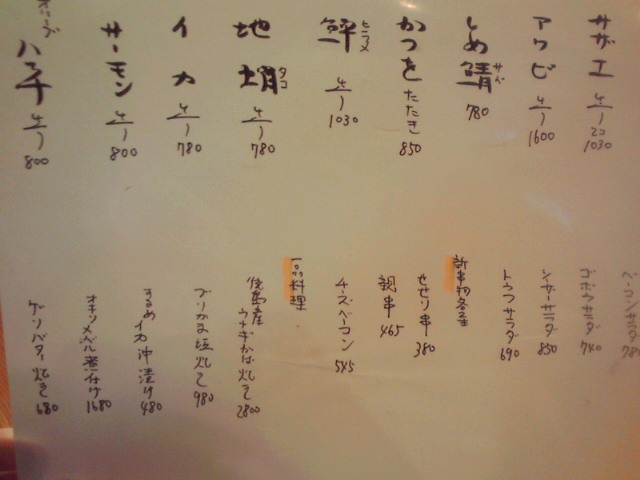 サザエ 4/1コ 1030
アワビ 4/1600
しめ鯖 サバ 780
かつをたたき 850
ヒラメ 4/1030
地蛸 タコ 4/780
イカ 4/780
サーモン 4/800
オリーブハマチ 4/800
ベーコンサラダ
ゴボウサラダ 740
シーザーサラダ 850
トウフサラダ 690
せせり串 380
親串 465
チーズベーコン 545
一品料理
徳島産ウナギかば焼き 2800
ブリかま塩焼き 980
するめイカ沖漬け 480
オキメバル煮付け 1680
ゲソバター焼き 680